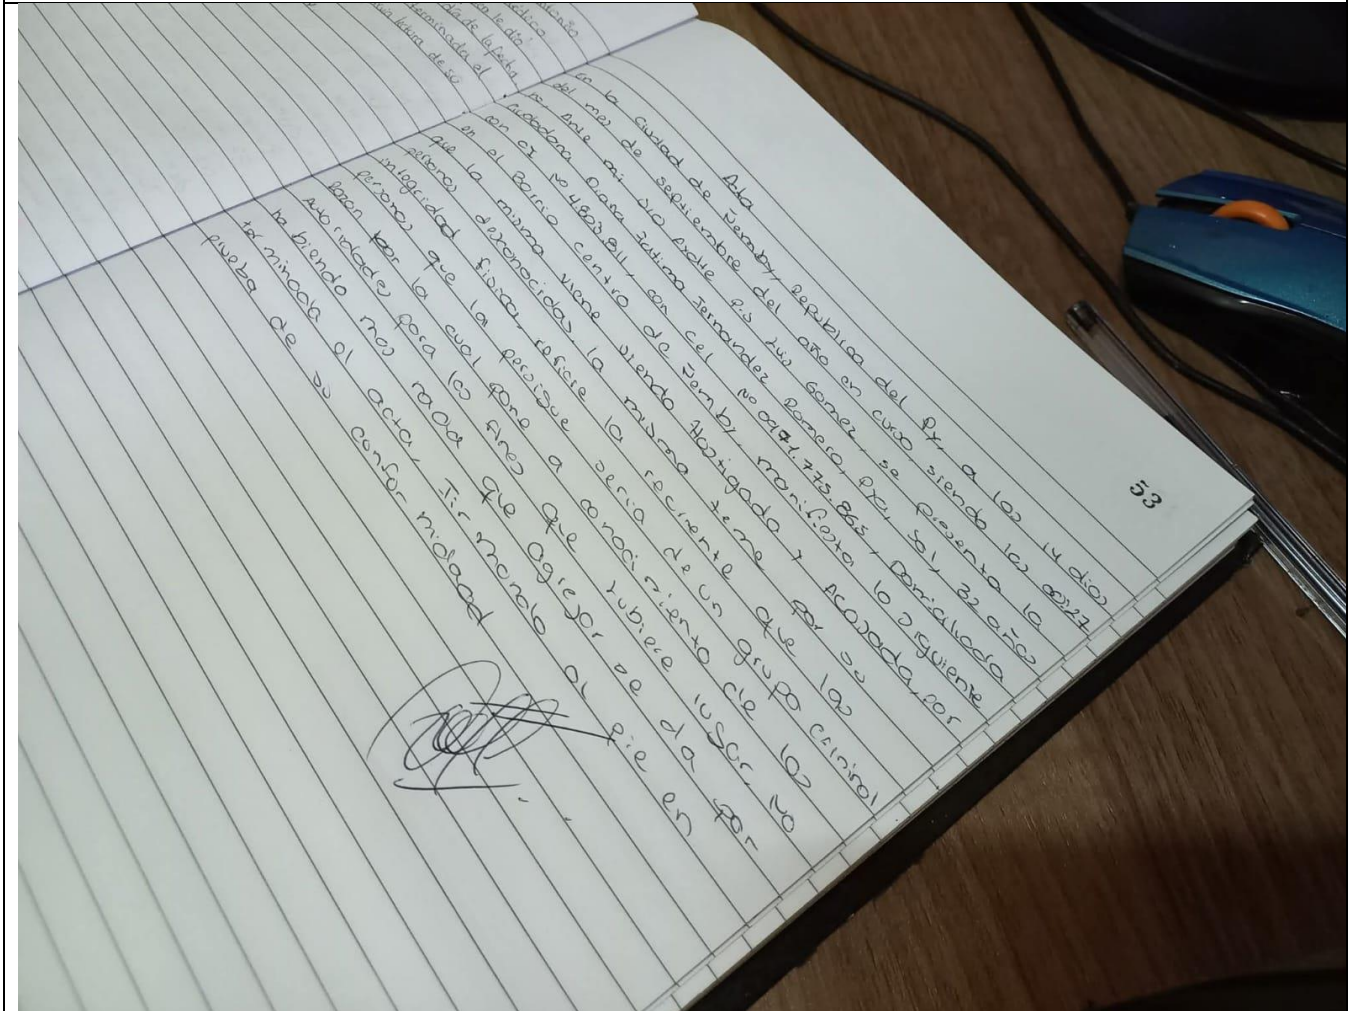 53
Acta
en la ciudad de Ñemby, Republica del Py, a los 14 dias
del mes de septiembre del año en curso siendo las 00:27
hs, Ante mi Sio P.s Luis Gomez, se presenta la
Ciudadana Diana Fatima Fernandez Romero, Pya, Sol, 32 años
con CI No 4.803.811, con cel No 0971.775.865, Domiciliada
en el Barrio centro de Ñemby, manifiesta lo siguiente
que la misma viene siendo Hostigada y Acosada, por
personas desconocidas, la misma teme por su
integridad fisica, refiere la reciente que las
personas que la persigue seria de un grupo criminal
Razon por la cual pone a conocimiento de las
Autoridades para los fines que hubiere lugar. No
habiendo mas nada que agregar se da por
terminada el acta, Firmando al pie en
prueba de su conformidad
terminada el